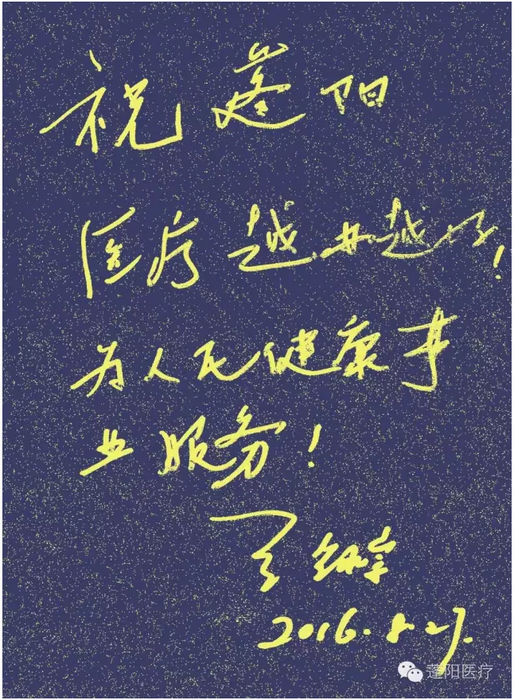 祝蓬阳
医疗越办越好!
为人民健康事
业服务!
2016.8.27.
蓬阳医疗